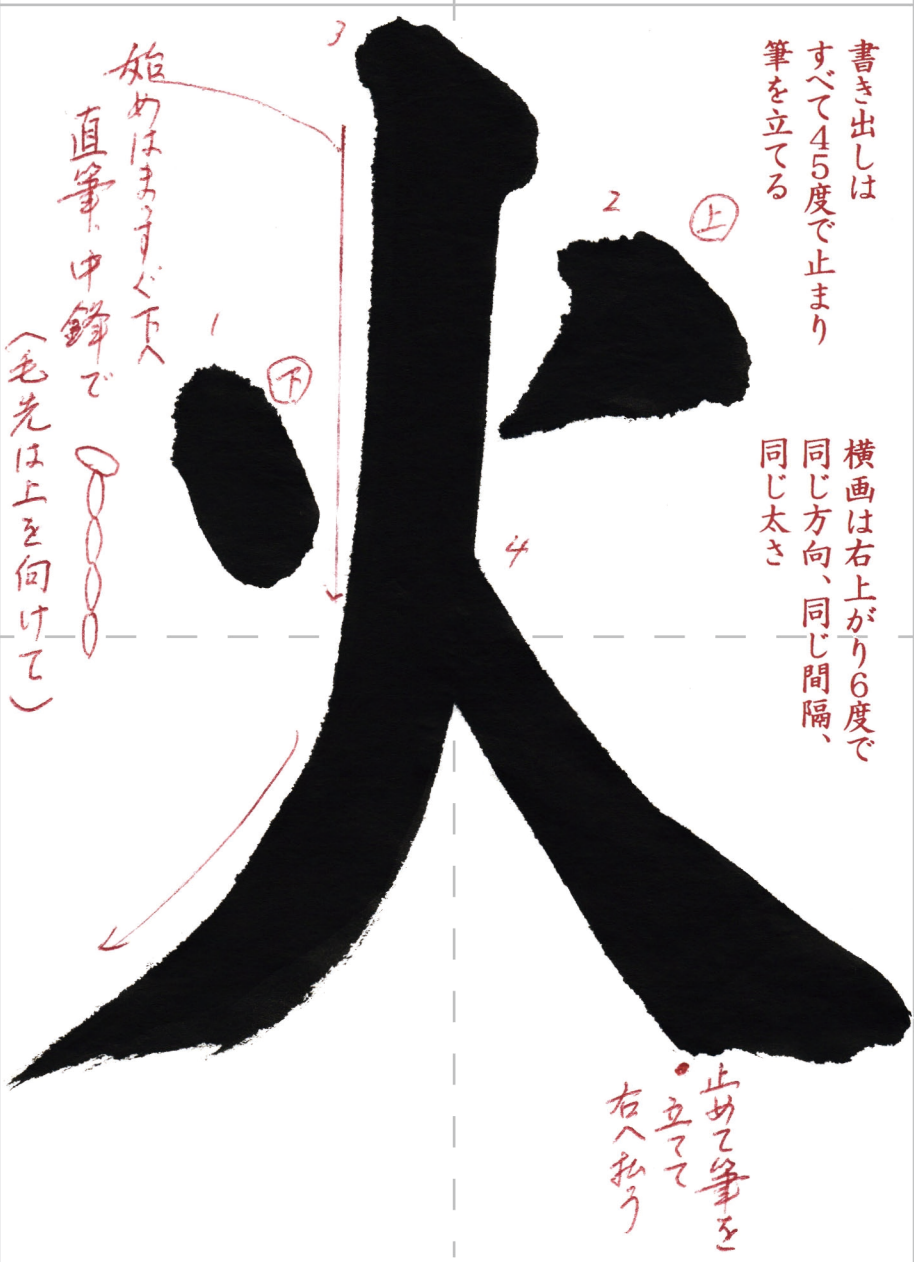 書き出しは
すべて45度で止まり
筆を立てる
横画は右上がり6度で
同じ方向、同じ間隔、
同じ太さ
火
1
2
3
4
上
下
始めはまっすぐ下へ
直筆、中鋒で
（毛先は上を向けて）
止めて筆を
立てて
右へ払う